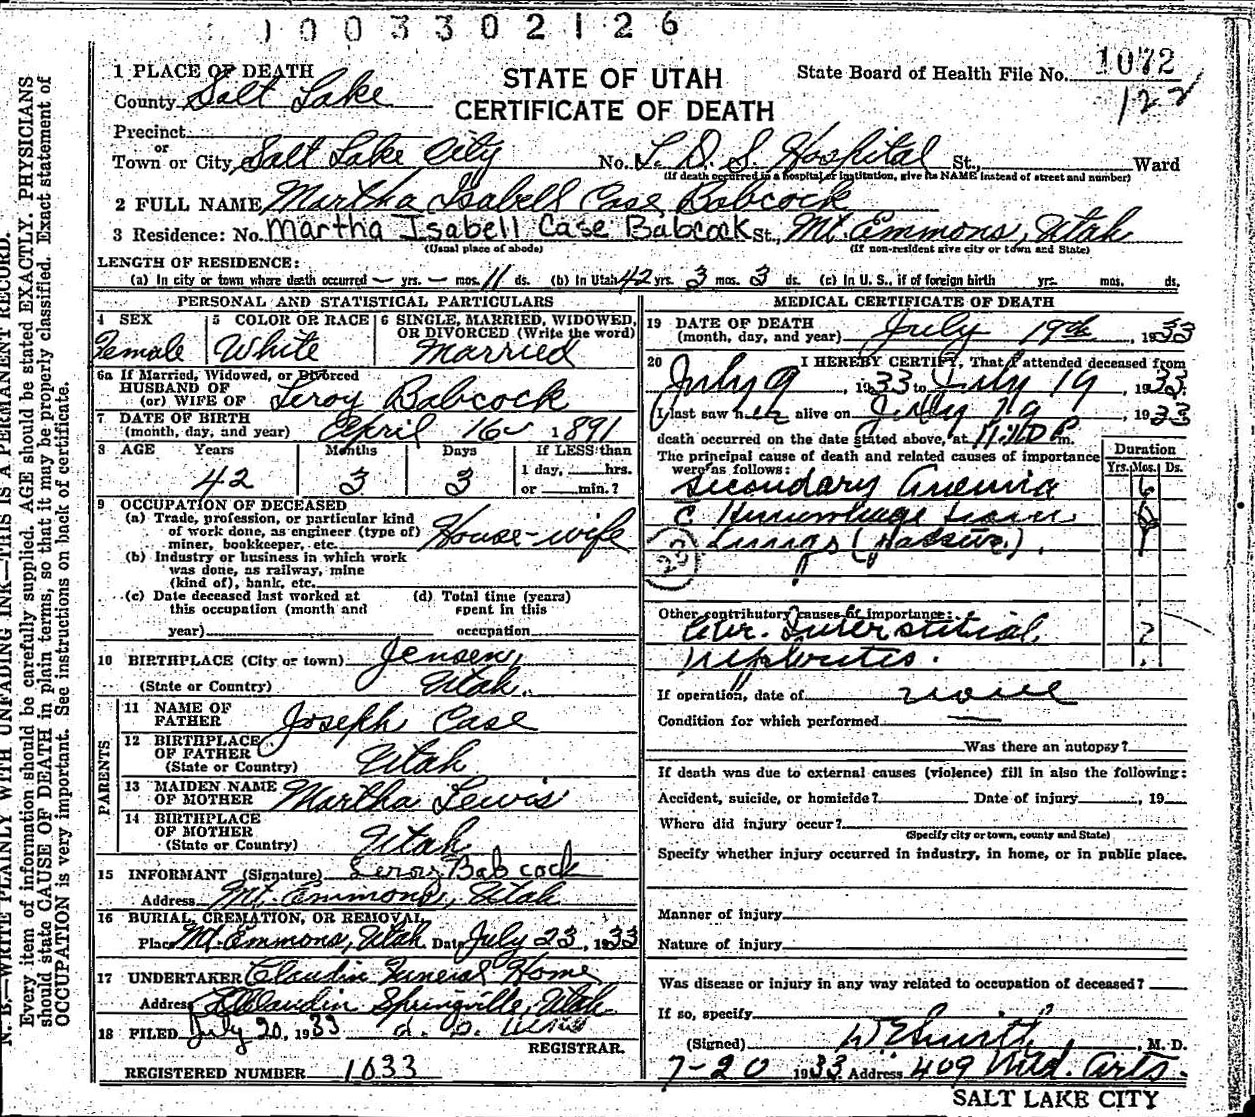 1003302126
1 PLACE OF DEATH
STATE OF UTAH
CERTIFICATE OF DEATH
State Board of Health File No. 1072
122
County Salt Lake
Precinct
or
Town or City Salt Lake City No. L. D. S. Hospital St., Ward
(If death occurred in a hospital or institution, give its NAME instead of street and number)
2 FULL NAME Martha Isabell Case Babcock
3 Residence: No. Martha Isabell Case Babcock St., Mt. Emmons, Utah
(Usual place of abode) (If non-resident give city or town and State)
LENGTH OF RESIDENCE:
(a) In city or town where death occurred — yrs. — mos. 11 ds. (b) In Utah 42 yrs. 3 mos. 3 ds. (c) In U. S., if of foreign birth yrs. mos. ds.
PERSONAL AND STATISTICAL PARTICULARS
4 SEX
Female
5 COLOR OR RACE
White
6 SINGLE, MARRIED, WIDOWED,
OR DIVORCED (Write the word)
Married
6a If Married, Widowed, or Divorced
HUSBAND OF
(or) WIFE OF Leroy Babcock
7 DATE OF BIRTH
(month, day, and year) April 16 1891
8 AGE Years Months Days If LESS than
1 day, hrs.
or min.?
42 3 3
9 OCCUPATION OF DECEASED
(a) Trade, profession, or particular kind
of work done, as engineer (type of)
miner, bookkeeper, etc. House-wife
(b) Industry or business in which work
was done, as railway, mine
(kind of), bank, etc.
(c) Date deceased last worked at
this occupation (month and
year)
(d) Total time (years)
spent in this
occupation
10 BIRTHPLACE (City or town) Jensen,
(State or Country) Utah.
PARENTS
11 NAME OF
FATHER Joseph Case
12 BIRTHPLACE
OF FATHER
(State or Country) Utah
13 MAIDEN NAME
OF MOTHER Martha Lewis
14 BIRTHPLACE
OF MOTHER
(State or Country) Utah
15 INFORMANT (Signature) Leroy Babcock
Address Mt. Emmons, Utah
16 BURIAL, CREMATION, OR REMOVAL
Place Mt. Emmons, Utah Date July 23, 1933
17 UNDERTAKER Claudin Funeral Home
Address Claudin Springville, Utah
18 FILED July 20, 1933
REGISTRAR.
REGISTERED NUMBER 1033
MEDICAL CERTIFICATE OF DEATH
19 DATE OF DEATH
(month, day, and year) July 19th, 1933
20 I HEREBY CERTIFY, That I attended deceased from
July 9 1933 to July 19, 1933
I last saw her alive on July 19, 1933
death occurred on the date stated above, at P m.
The principal cause of death and related causes of importance
were as follows:
Duration
Yrs. Mos. Ds.
Secondary Anemia 6
c̄ Hemorrhage from
Lungs (Massive).
Other contributory causes of importance:
Chr. Interstitial ?
nephrites.
If operation, date of none
Condition for which performed —
Was there an autopsy?
If death was due to external causes (violence) fill in also the following:
Accident, suicide, or homicide? Date of injury , 19
Where did injury occur?
(Specify city or town, county and State)
Specify whether injury occurred in industry, in home, or in public place.
Manner of injury
Nature of injury
Was disease or injury in any way related to occupation of deceased?
If so, specify
(Signed) W E Smith, M. D.
7-20 1933 Address 409 Med. Arts.
SALT LAKE CITY
N. B.—WRITE PLAINLY WITH UNFADING INK—THIS IS A PERMANENT RECORD.
Every item of information should be carefully supplied. AGE should be stated EXACTLY. PHYSICIANS
should state CAUSE OF DEATH in plain terms, so that it may be properly classified. Exact statement of
OCCUPATION is very important. See instructions on back of certificate.